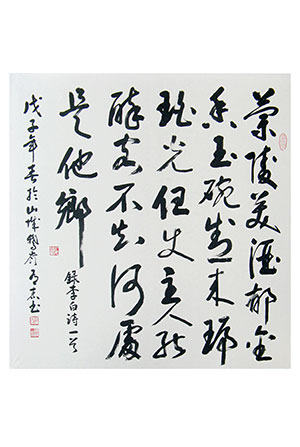 兰陵美酒郁金
香玉碗盛来琥
珀光但使主人能
醉客不知何处
是他乡
录李白诗一首
戊子年春於山城鹅岭